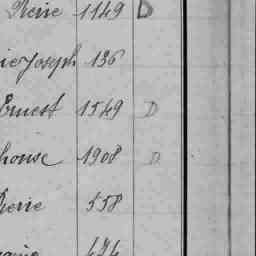 Pierre 1149 D
ie Joseph 136
Ernest 1549 D
honse 1908 D
Pierre 558
474